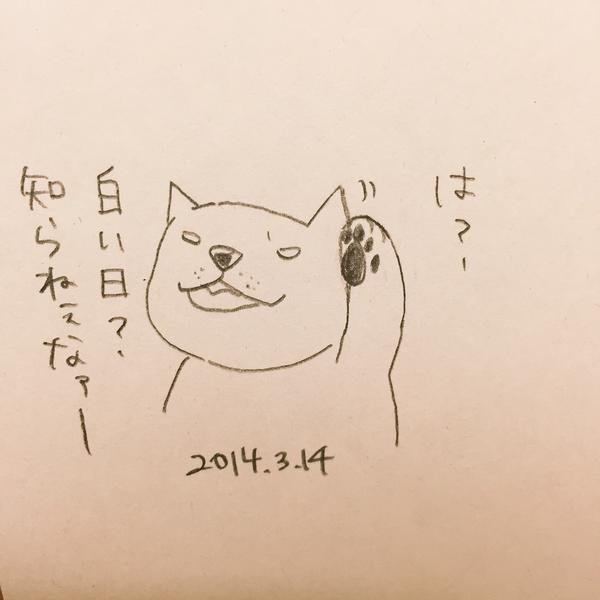 は?
白い日?
知らねぇなァー
2014.3.14